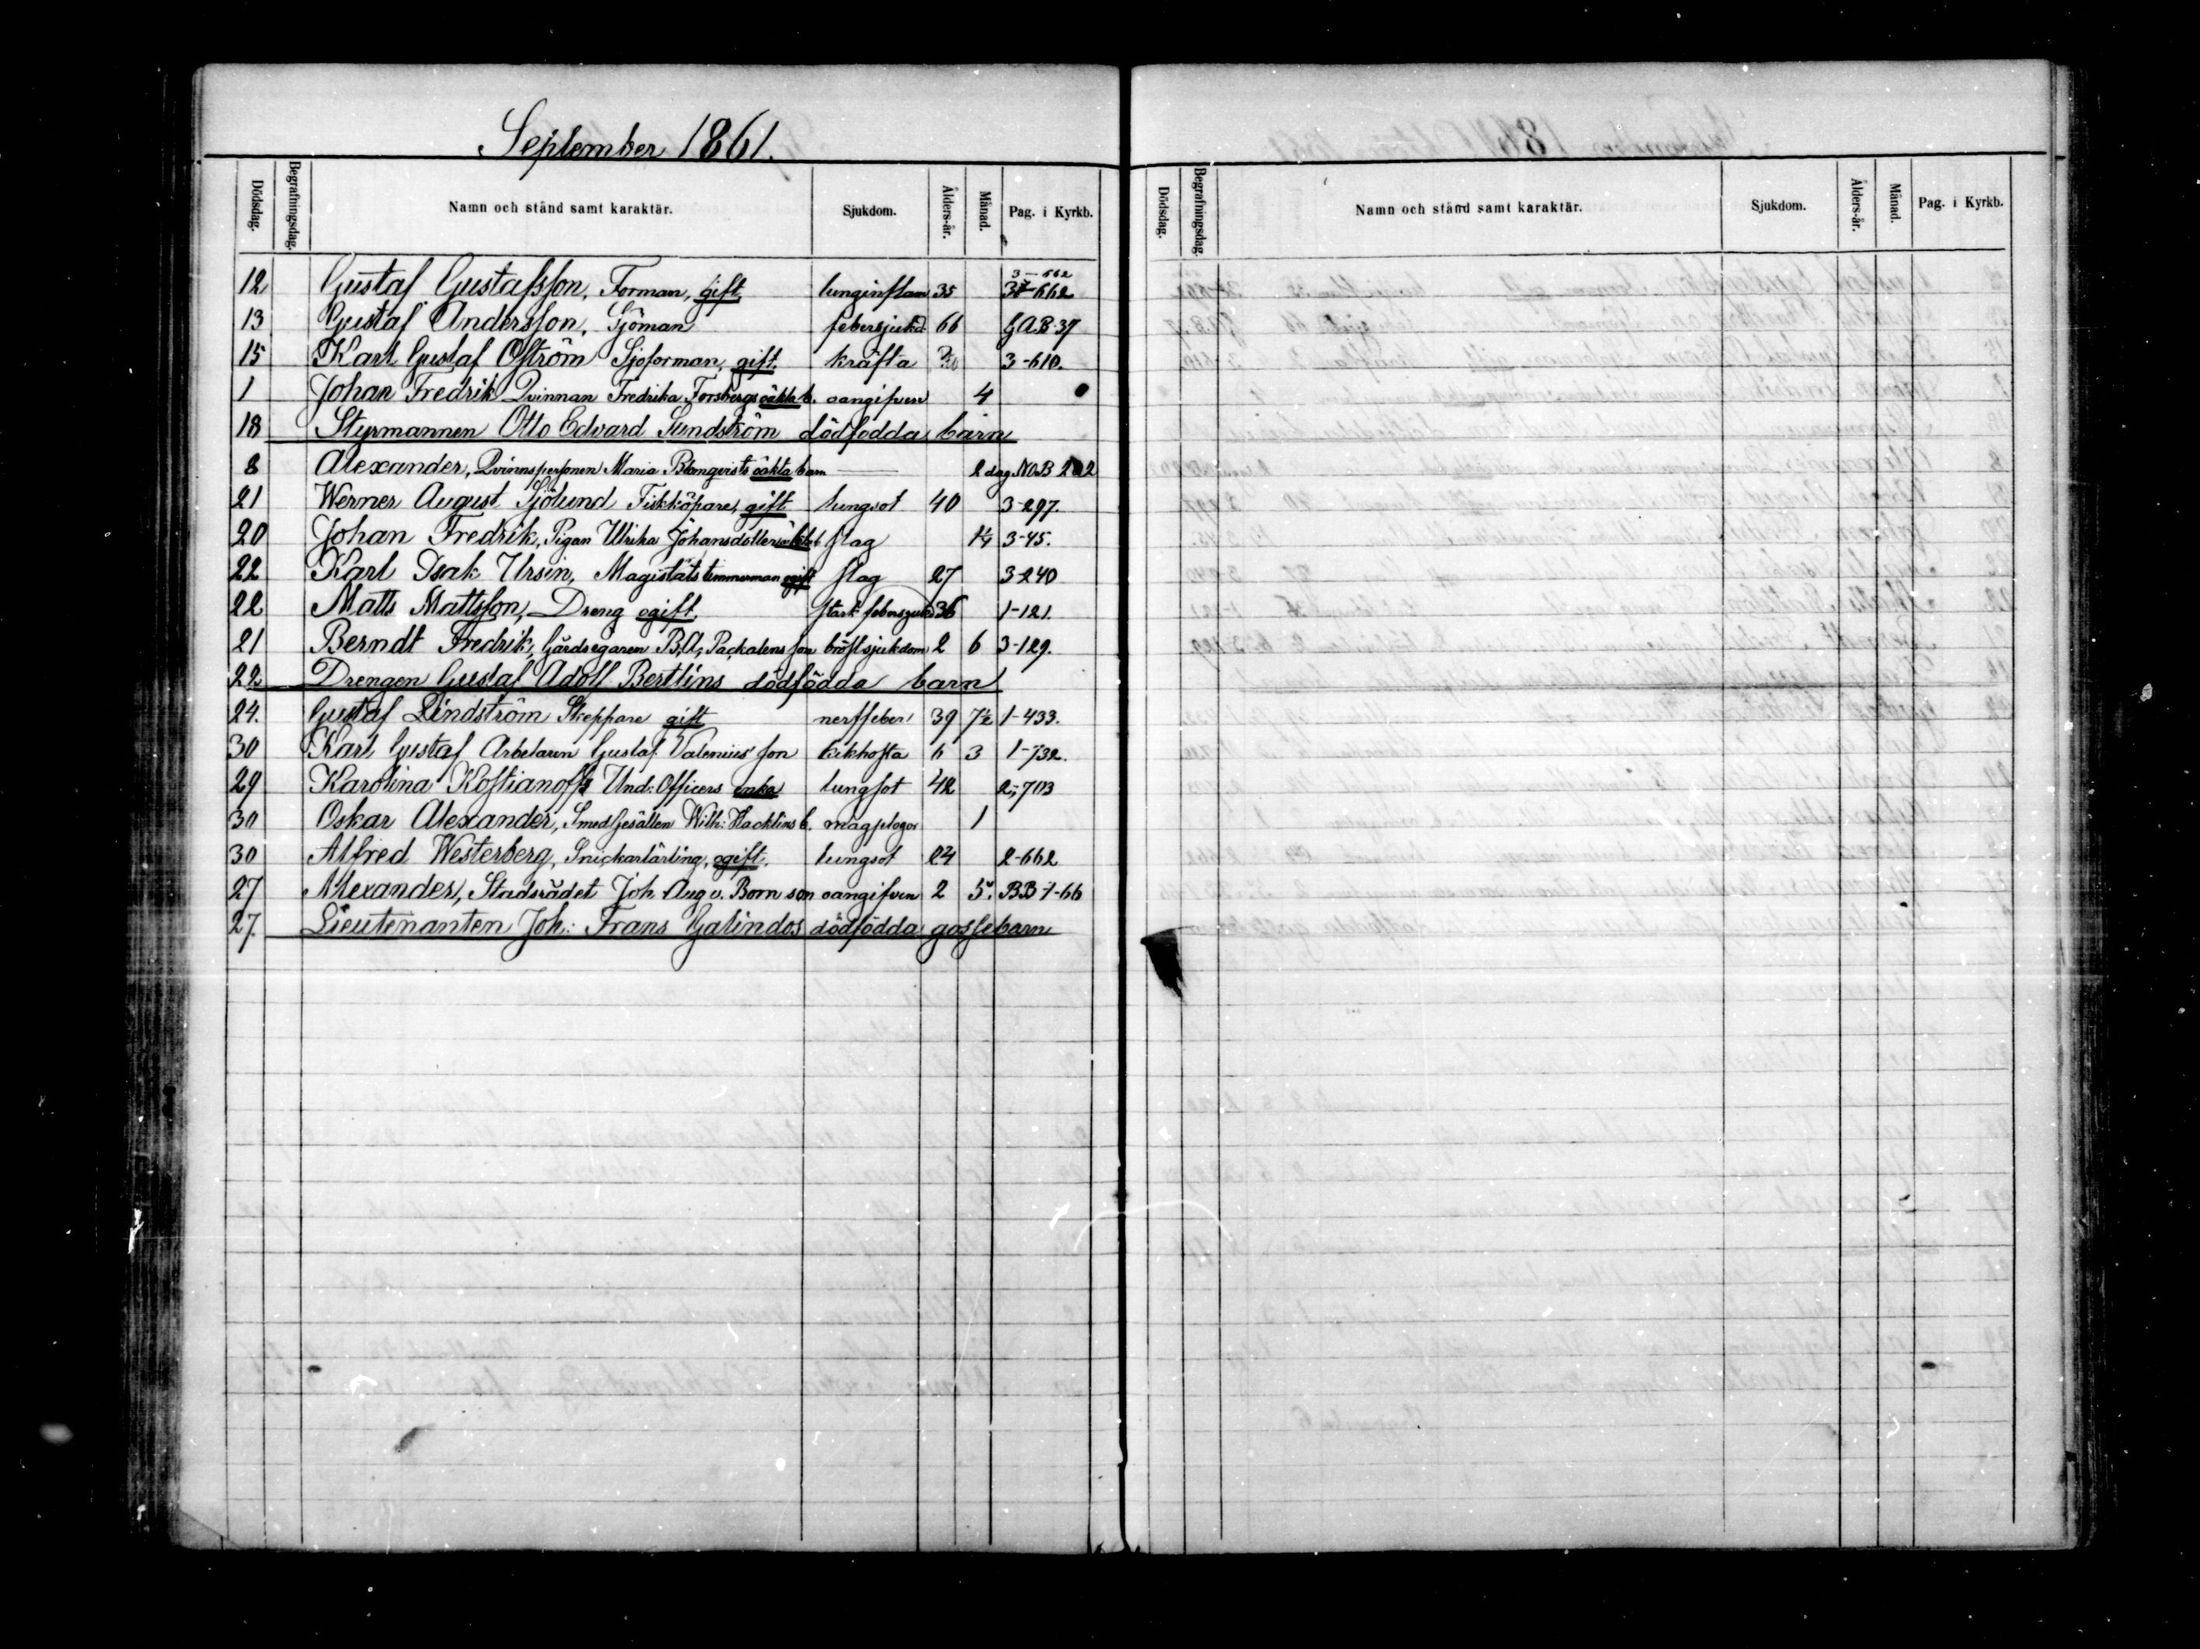 September 1861.
Dödsdag. Begrafningsdag. Namn och stånd samt karaktär. Sjukdom. Ålders-år. Månad. Pag. i Kyrkb.
3-662
12 Gustaf Gustafsson, Forman, gift lunginflam 35 3-662
13 Gustaf Andersson, Sjöman febersjukd 66 G.A.B. 37
15 Karl Gustaf Öström Sjöforman, gift. kräfta 3-610.
1 Johan Fredrik Qvinnan Fredrika Forsbergs oäkta b. oangifven 4
18 Styrmannen Otto Edvard Sundström dödfödda barn
8 Alexander, Qvinnspersonen Maria Blomqvists oäkta barn 2 dag. No.B 202
21 Werner August Sjölund Fiskköpare, gift lungsot 40 3-297.
20 Johan Fredrik, Pigan Ulrika Johansdotters oäkta b slag 1 1/4 3-45.
22 Karl Isak Ursin, Magistats timmerman ogift slag 27 3-240
22 Matts Mattsson, Dreng ogift. stark febersjukd 36 1-121.
21 Berndt Fredrik, Gårdsegaren B.A. Packalens son bröstsjukdom 2 6 3-129.
22 Drengen Gustaf Adolf Bertlins dödfödda barn
24. Gustaf Lindström Skeppare gift nerffeber 39 7 1/2 1-433.
30 Karl Gustaf Arbetaren Gustaf Valenius' son kikhosta 6 3 1-732.
29 Karolina Kostianoffs Und: Officers enka lungsot 42 2-703
30 Oskar Alexander, Smedgesällen Wilh: Hacklins b. magplågor 1
30 Alfred Westerberg, Snickarlärling, ogift. lungsot 24 2-662
27 Alexander, Stadsrådet Joh. Aug v. Born son oangifven 2 5. BB 1-66
27. Lieutenanten Joh: Frans Galindos dödfödda gossebarn
Dödsdag. Begrafningsdag. Namn och stånd samt karaktär. Sjukdom. Ålders-år. Månad. Pag. i Kyrkb.